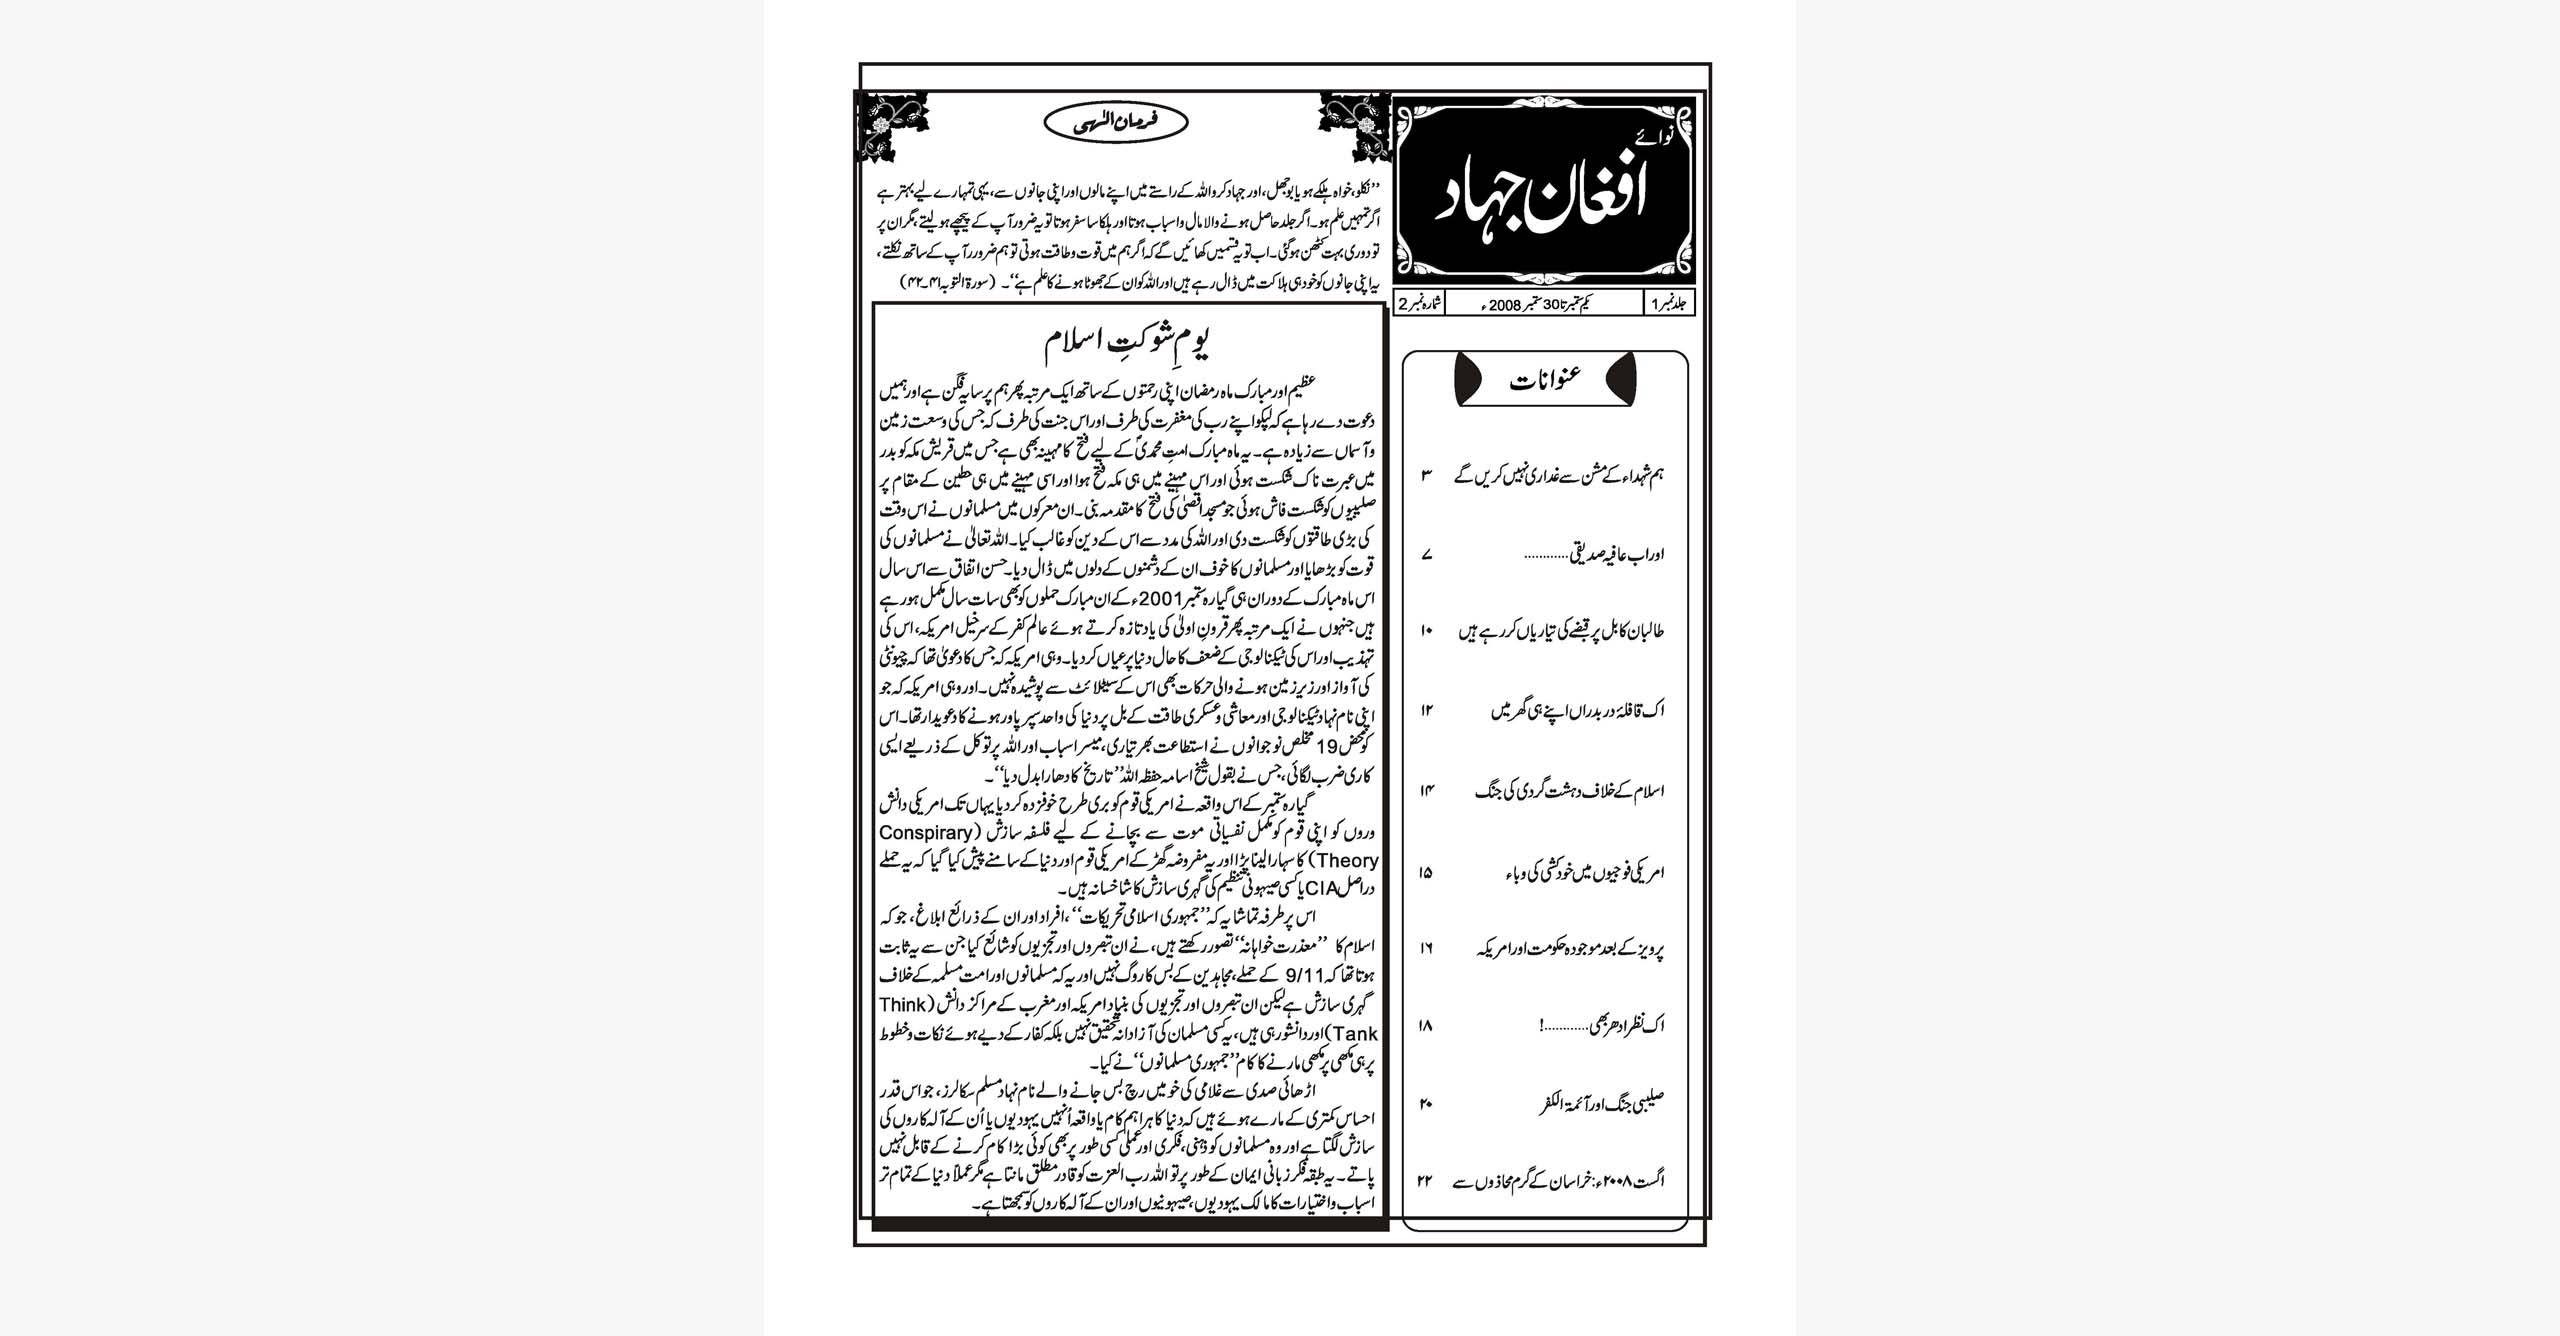 نوائے
افغان جہاد
جلد نمبر 1
یکم ستمبر تا 30 ستمبر 2008ء
شمارہ نمبر 2
عنوانات
ہم شہداء کے مشن سے غداری نہیں کریں گے ۳
اور اب عافیہ صدیقی ............ ۷
طالبان کابل پر قبضے کی تیاریاں کر رہے ہیں ۱۰
اک قافلۂ در بدراں اپنے ہی گھر میں ۱۲
اسلام کے خلاف دہشت گردی کی جنگ ۱۴
امریکی فوجیوں میں خودکشی کی وباء ۱۵
پرویز کے بعد موجودہ حکومت اور امریکہ ۱۶
اک نظر ادھر بھی ............! ۱۸
صلیبی جنگ اور آئمۃ الکفر ۲۰
اگست ۲۰۰۸ء: خراسان کے گرم محاذوں سے ۲۲
فرمان الٰہی
’’نکلو، خواہ ہلکے ہو یا بوجھل، اور جہاد کرو اللہ کے راستے میں اپنے مالوں اور اپنی جانوں سے، یہی تمہارے لیے بہتر ہے
اگر تمہیں علم ہو۔ اگر جلد حاصل ہونے والا مال و اسباب ہوتا اور ہلکا سا سفر ہوتا تو یہ ضرور آپ کے پیچھے ہو لیتے، مگر ان پر
تو دوری بہت کٹھن ہو گئی۔ اب تو یہ قسمیں کھائیں گے کہ اگر ہم میں قوت و طاقت ہوتی تو ہم ضرور آپ کے ساتھ نکلتے،
یہ اپنی جانوں کو خود ہی ہلاکت میں ڈال رہے ہیں اور اللہ کو ان کے جھوٹا ہونے کا علم ہے‘‘۔ (سورۃ التوبہ ۴۱۔۴۲)
یومِ شوکتِ اسلام
عظیم اور مبارک ماہ رمضان اپنی رحمتوں کے ساتھ ایک مرتبہ پھر ہم پر سایہ فگن ہے اور ہمیں
دعوت دے رہا ہے کہ لپکو اپنے رب کی مغفرت کی طرف اور اس جنت کی طرف کہ جس کی وسعت زمین
و آسماں سے زیادہ ہے۔ یہ ماہ مبارک امتِ محمدیؐ کے لیے فتح کا مہینہ بھی ہے جس میں قریش مکہ کو بدر
میں عبرت ناک شکست ہوئی اور اس مہینے میں ہی مکہ فتح ہوا اور اسی مہینے میں ہی حطین کے مقام پر
صلیبیوں کو شکست فاش ہوئی جو مسجد اقصیٰ کی فتح کا مقدمہ بنی۔ ان معرکوں میں مسلمانوں نے اس وقت
کی بڑی طاقتوں کو شکست دی اور اللہ کی مدد سے اس کے دین کو غالب کیا۔ اللہ تعالیٰ نے مسلمانوں کی
قوت کو بڑھایا اور مسلمانوں کا خوف ان کے دشمنوں کے دلوں میں ڈال دیا۔ حسن اتفاق سے اس سال
اس ماہ مبارک کے دوران ہی گیارہ ستمبر 2001ء کے ان مبارک حملوں کو بھی سات سال مکمل ہو رہے
ہیں جنہوں نے ایک مرتبہ پھر قرونِ اولیٰ کی یاد تازہ کرتے ہوئے عالم کفر کے سرخیل امریکہ، اس کی
تہذیب اور اس کی ٹیکنالوجی کے ضعف کا حال دنیا پر عیاں کر دیا۔ وہی امریکہ کہ جس کا دعویٰ تھا کہ چیونٹی
کی آواز اور زیر زمین ہونے والی حرکات بھی اس کے سیٹلائٹ سے پوشیدہ نہیں۔ اور وہی امریکہ کہ جو
اپنی نام نہاد ٹیکنالوجی اور معاشی و عسکری طاقت کے بل پر دنیا کی واحد سپر پاور ہونے کا دعویدار تھا۔ اس
کو محض 19 مخلص نوجوانوں نے استطاعت بھر تیاری، میسر اسباب اور اللہ پر توکل کے ذریعے ایسی
کاری ضرب لگائی، جس نے بقول شیخ اسامہ حفظہ اللہ ’’تاریخ کا دھارا بدل دیا‘‘۔
گیارہ ستمبر کے اس واقعہ نے امریکی قوم کو بری طرح خوفزدہ کر دیا یہاں تک امریکی دانش
وروں کو اپنی قوم کو مکمل نفسیاتی موت سے بچانے کے لیے فلسفہ سازش (Conspirary
Theory) کا سہارا لینا پڑا اور یہ مفروضہ گھڑ کے امریکی قوم اور دنیا کے سامنے پیش کیا گیا کہ یہ حملے
دراصل CIA یا کسی صیہونی تنظیم کی گہری سازش کا شاخسانہ ہیں۔
اس پر طرفہ تماشا یہ کہ ’’جمہوری اسلامی تحریکات‘‘، افراد اور ان کے ذرائع ابلاغ، جو کہ
اسلام کا ’’معذرت خواہانہ‘‘ تصور رکھتے ہیں، نے ان تبصروں اور تجزیوں کو شائع کیا جن سے یہ ثابت
ہوتا تھا کہ 9/11 کے حملے، مجاہدین کے بس کا روگ نہیں اور یہ کہ مسلمانوں اور امت مسلمہ کے خلاف
گہری سازش ہے لیکن ان تبصروں اور تجزیوں کی بنیاد امریکہ اور مغرب کے مراکز دانش (Think
Tank) اور دانشور ہی ہیں، یہ کسی مسلمان کی آزادانہ تحقیق نہیں بلکہ کفار کے دیے ہوئے نکات و خطوط
پر ہی مکھی پر مکھی مارنے کا کام ’’جمہوری مسلمانوں‘‘ نے کیا۔
اڑھائی صدی سے غلامی کی خو میں رچ بس جانے والے نام نہاد مسلم سکالرز، جو اس قدر
احساس کمتری کے مارے ہوئے ہیں کہ دنیا کا ہر اہم کام یا واقعہ اُنہیں یہودیوں یا اُن کے آلہ کاروں کی
سازش لگتا ہے اور وہ مسلمانوں کو ذہنی، فکری اور عملی کسی طور پر بھی کوئی بڑا کام کرنے کے قابل نہیں
پاتے۔ یہ طبقہ فکر زبانی ایمان کے طور پر تو اللہ رب العزت کو قادر مطلق مانتا ہے مگر عملاً دنیا کے تمام تر
اسباب و اختیارات کا مالک یہودیوں، صیہونیوں اور ان کے آلہ کاروں کو سمجھتا ہے۔